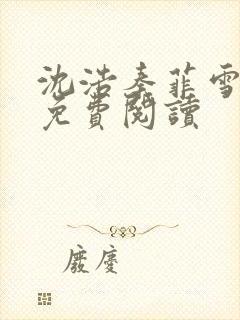 沈浩秦菲雪
免費閱讀
廢慶